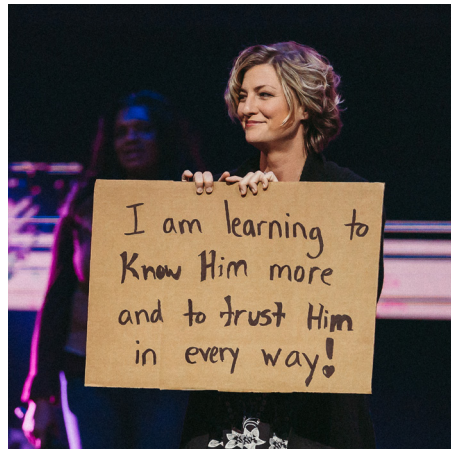 I am learning to
Know Him more
and to trust Him
in every way!